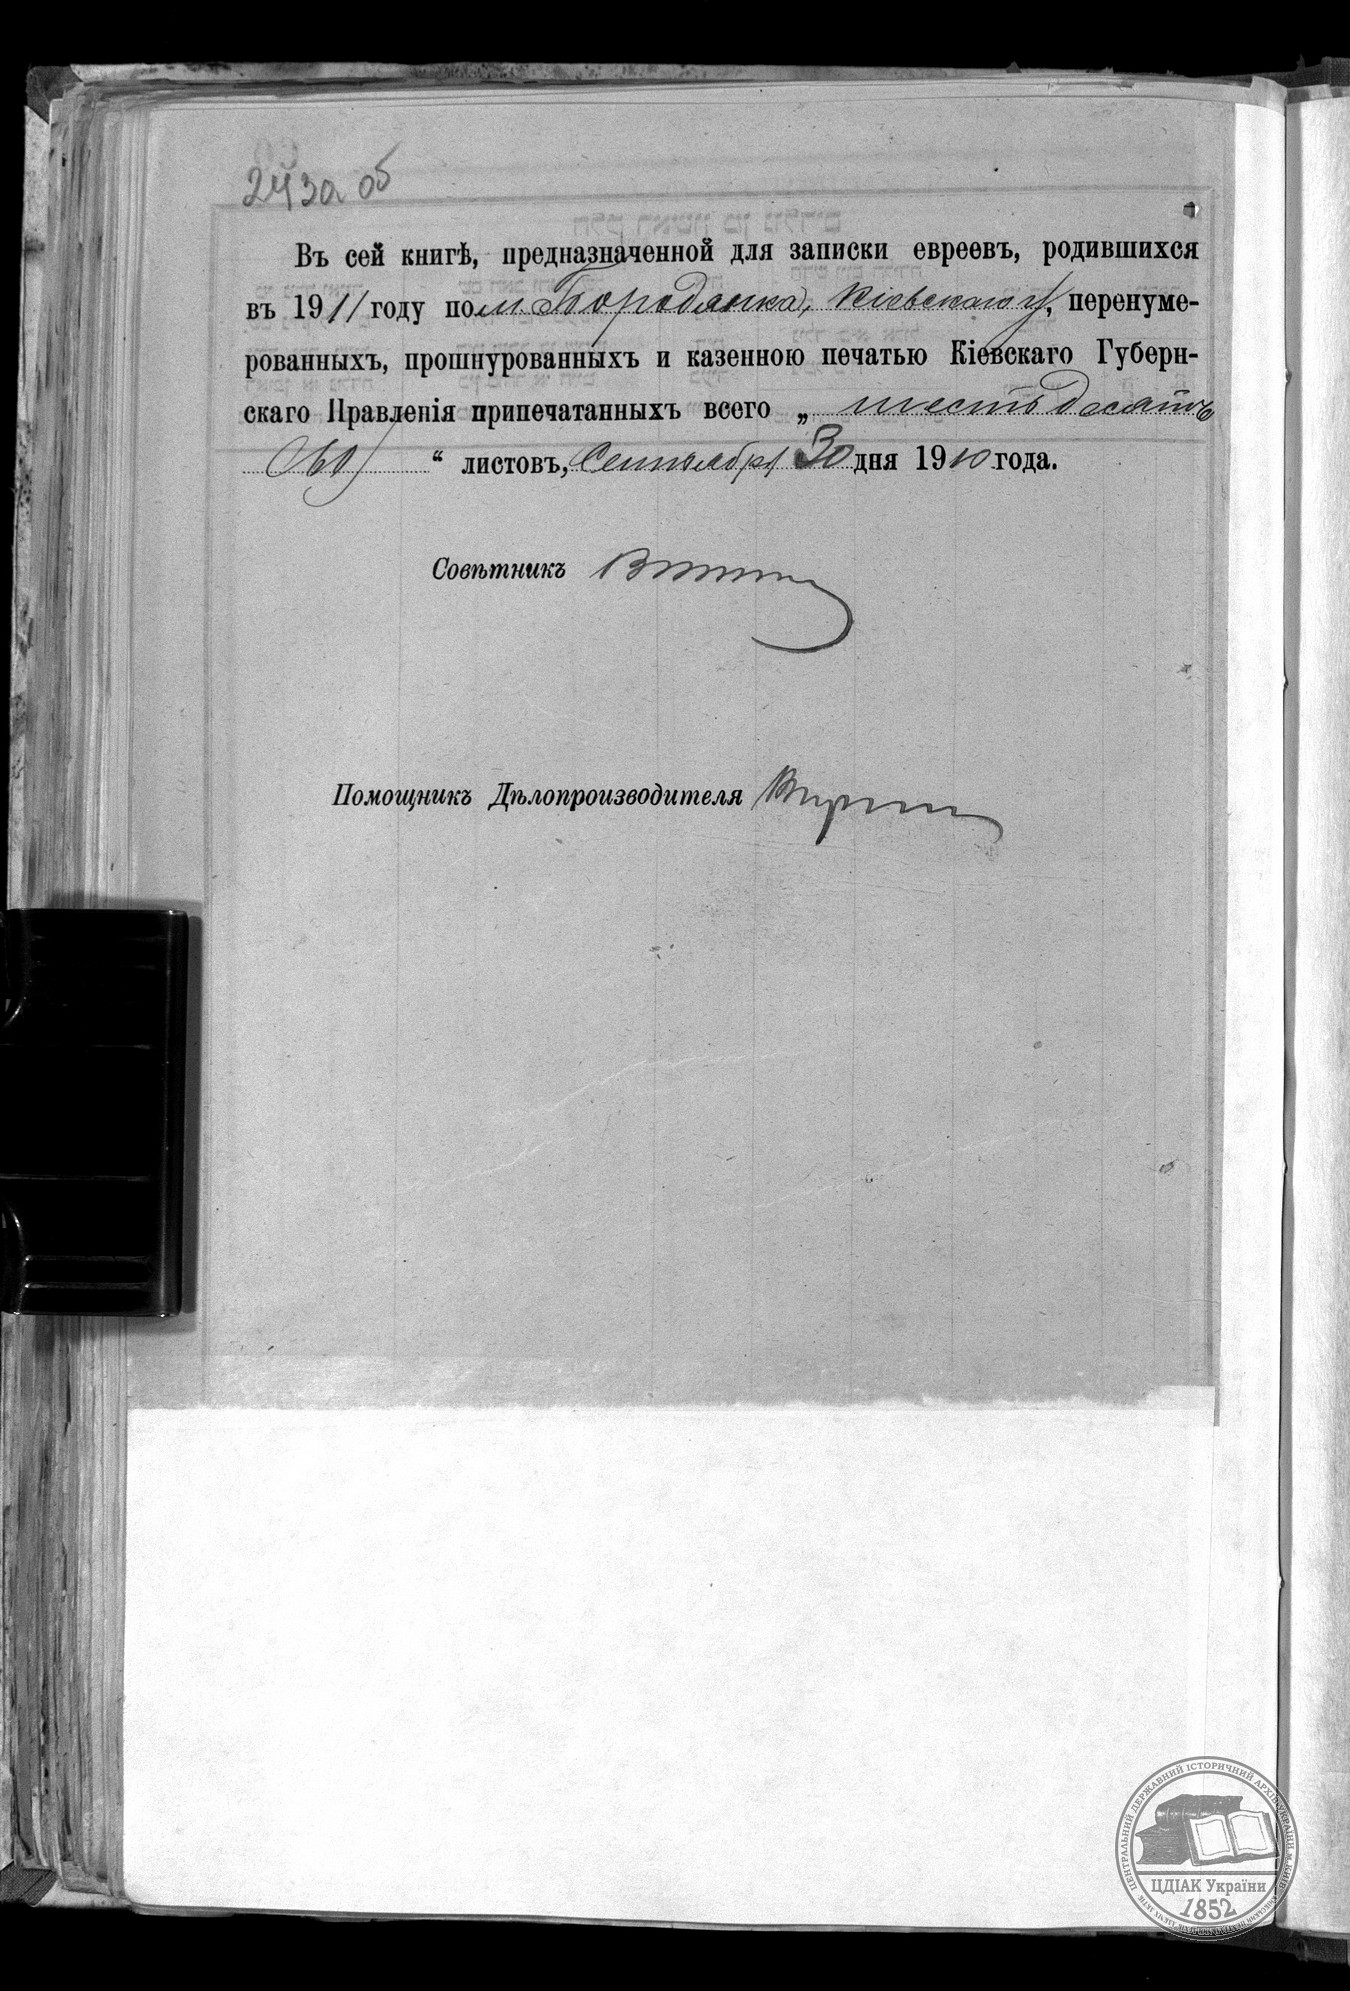 243а об
Въ сей книгѣ, предназначенной для записки евреевъ, родившихся
въ 1911 году по м. Бородянка, Кіевскаго у, перенуме-
рованныхъ, прошнурованныхъ и казенною печатью Кіевскаго Губерн-
скаго Правленія припечатанныхъ всего „ шестьдесятъ
(60) “ листовъ, Сентября 30 дня 1910 года.
Совѣтникъ
Помощникъ Дѣлопроизводителя
ЦЕНТРАЛЬНИЙ ДЕРЖАВНИЙ ІСТОРИЧНИЙ АРХІВ УКРАЇНИ, м. КИЇВ
ЦДІАК України
1852